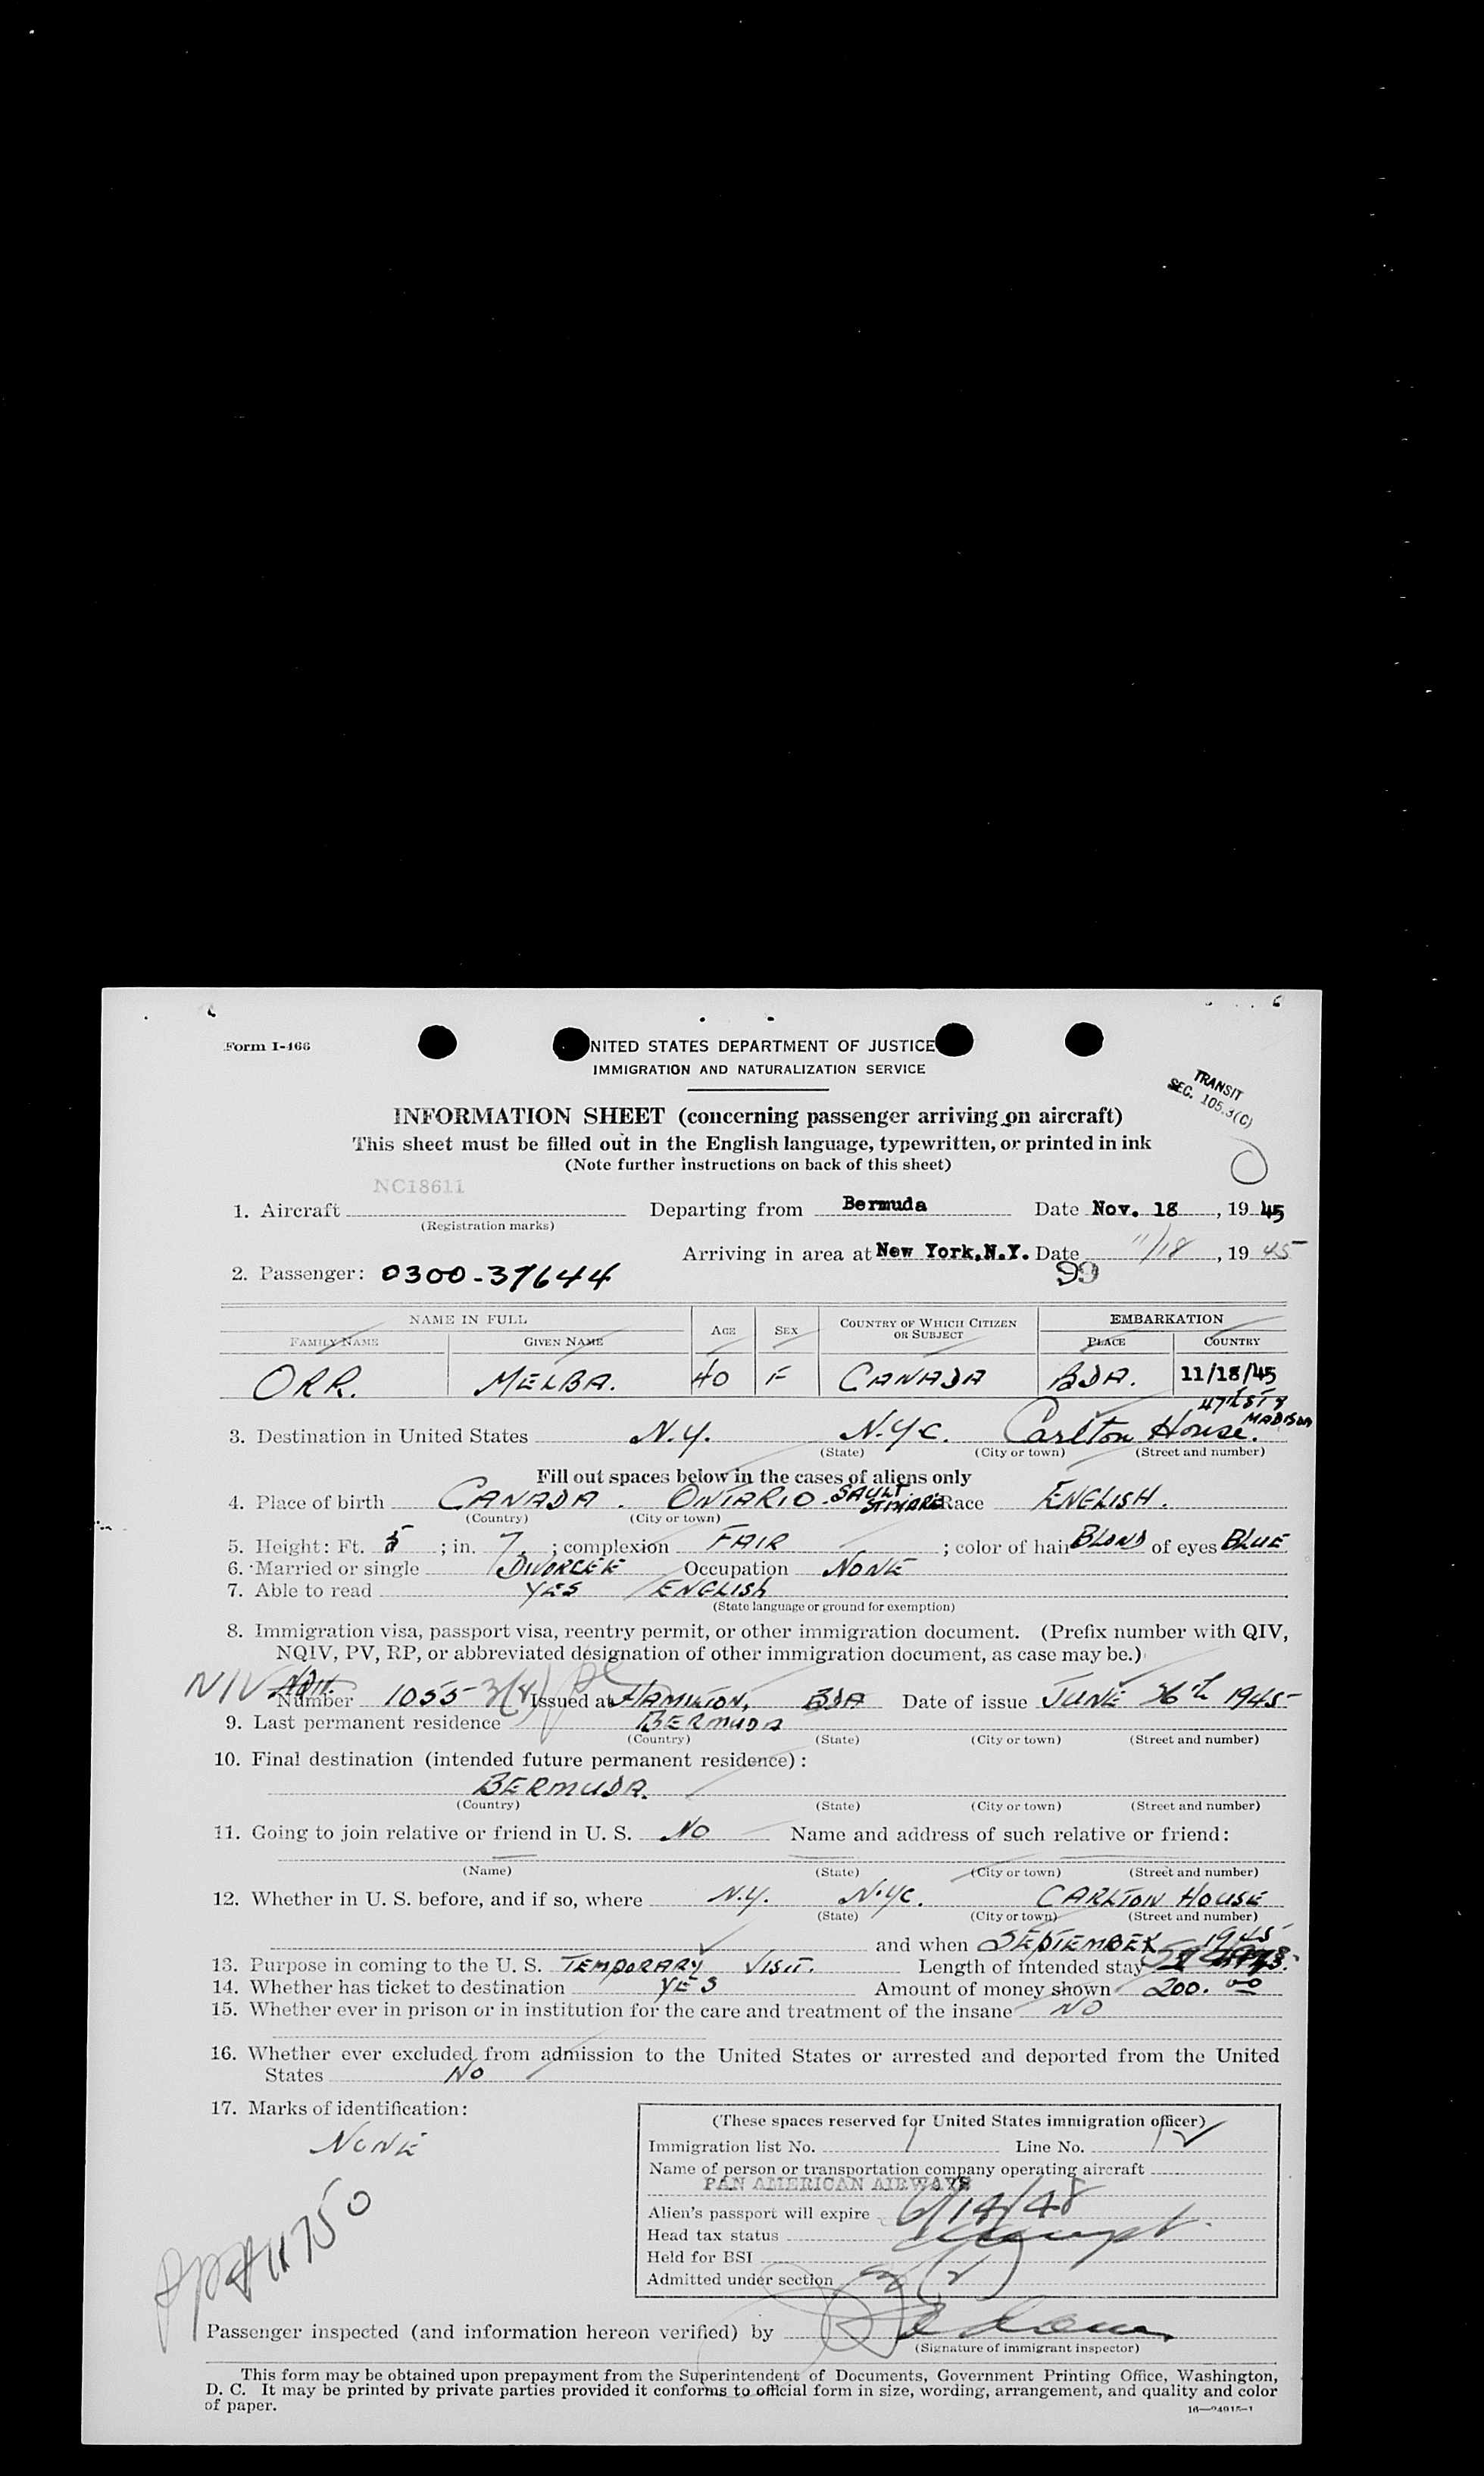 Form I-466
UNITED STATES DEPARTMENT OF JUSTICE
IMMIGRATION AND NATURALIZATION SERVICE
TRANSIT
SEC. 105.3(C)
INFORMATION SHEET (concerning passenger arriving on aircraft)
This sheet must be filled out in the English language, typewritten, or printed in ink
(Note further instructions on back of this sheet)
NC18611
1. Aircraft Departing from Bermuda Date Nov. 18, 1945
(Registration marks)
Arriving in area at New York, N.Y. Date 11/18, 1945
2. Passenger: 0300-37644 99
NAME IN FULL AGE SEX COUNTRY OF WHICH CITIZEN OR SUBJECT EMBARKATION
FAMILY NAME GIVEN NAME PLACE COUNTRY
ORR. MELBA. 40 F CANADA BDA. 11/18/45
MADISON
3. Destination in United States N.Y. N.Y.C. Carlton House.
(State) (City or town) (Street and number)
Fill out spaces below in the cases of aliens only
4. Place of birth CANADA. ONTARIO. SAULT ST MARIE Race ENGLISH.
(Country) (City or town)
5. Height: Ft. 5; in. 7; complexion FAIR; color of hair BLOND of eyes BLUE
6. Married or single DIVORCEE Occupation NONE
7. Able to read YES ENGLISH
(State language or ground for exemption)
8. Immigration visa, passport visa, reentry permit, or other immigration document. (Prefix number with QIV,
NQIV, PV, RP, or abbreviated designation of other immigration document, as case may be.)
NIV Number 1055 3(4) Issued at HAMILTON, BDA Date of issue JUNE 1945
9. Last permanent residence BERMUDA
(Country) (State) (City or town) (Street and number)
10. Final destination (intended future permanent residence):
BERMUDA.
(Country) (State) (City or town) (Street and number)
11. Going to join relative or friend in U. S. NO Name and address of such relative or friend:
(Name) (State) (City or town) (Street and number)
12. Whether in U. S. before, and if so, where N.Y. N.Y.C. CARLTON HOUSE
(State) (City or town) (Street and number)
and when SEPTEMBER 1945
13. Purpose in coming to the U. S. TEMPORARY VISIT. Length of intended stay
14. Whether has ticket to destination YES Amount of money shown 200.00
15. Whether ever in prison or in institution for the care and treatment of the insane NO
16. Whether ever excluded from admission to the United States or arrested and deported from the United
States NO
17. Marks of identification:
NONE
(These spaces reserved for United States immigration officer)
Immigration list No. 1 Line No. 12
Name of person or transportation company operating aircraft
PAN AMERICAN AIRWAYS
Alien's passport will expire 6/14/48
Head tax status exempt.
Held for BSI
Admitted under section 3(2)
Passenger inspected (and information hereon verified) by
(Signature of immigrant inspector)
This form may be obtained upon prepayment from the Superintendent of Documents, Government Printing Office, Washington,
D. C. It may be printed by private parties provided it conforms to official form in size, wording, arrangement, and quality and color
of paper.